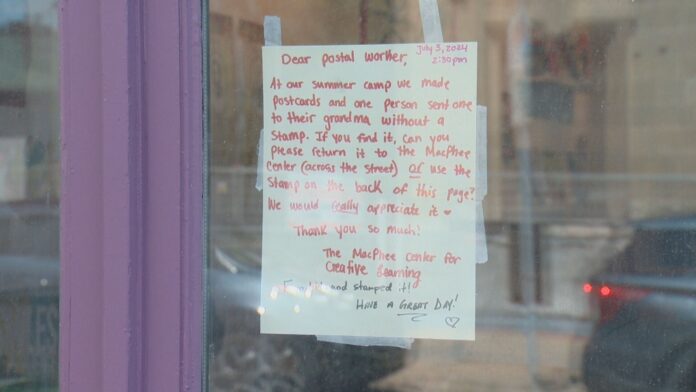 July 3, 2024
2:30pm
Dear postal worker,
At our summer camp we made
postcards and one person sent one
to their grandma without a
stamp. If you find it, can you
please return it to the MacPhee
Center (across the street) or use the
stamp on the back of this page?
We would really appreciate it ♥
Thank you so much!
The MacPhee Center for
Creative Learning
and stamped it!
HAVE A GREAT DAY!